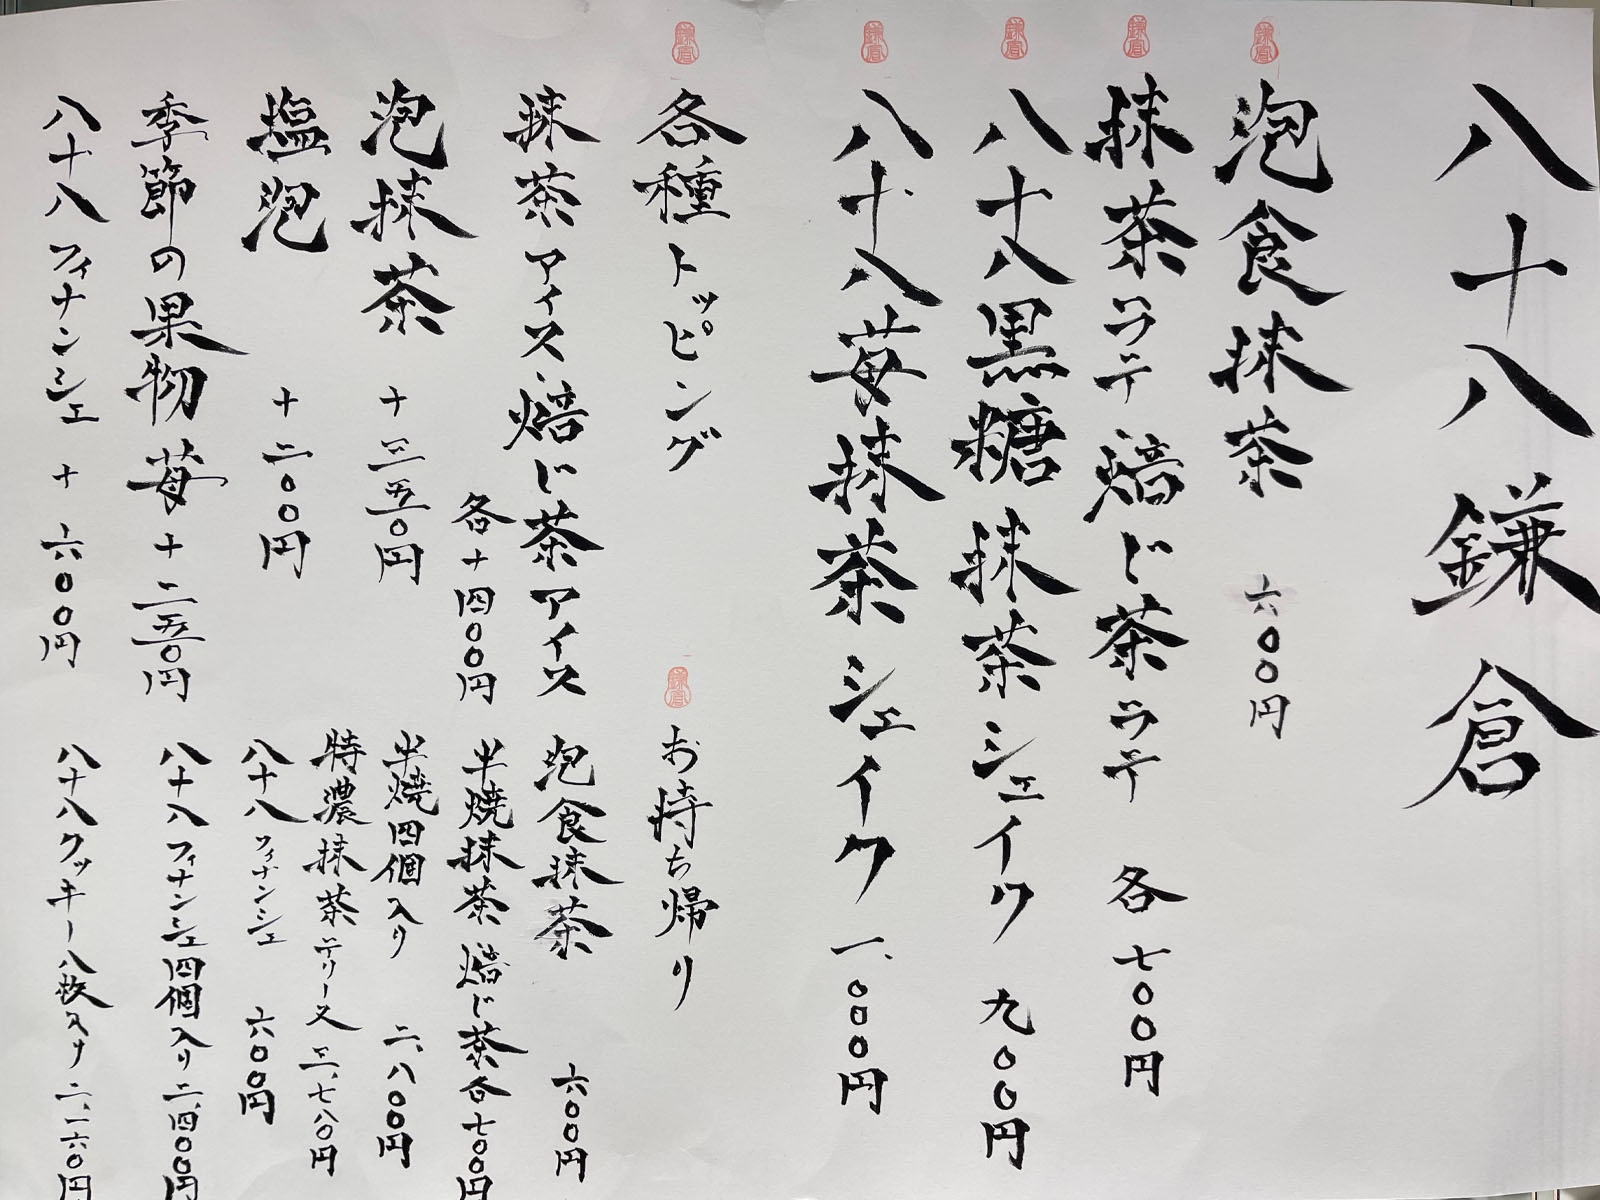 八十八鎌倉
泡食抹茶 六〇〇円
抹茶ラテ・焙じ茶ラテ 各七〇〇円
八十八黒糖抹茶シェイク 九〇〇円
八十八苺抹茶シェイク 一、〇〇〇円
各種トッピング
抹茶アイス・焙じ茶アイス
各+四〇〇円
泡抹茶 +三五〇円
塩泡 +二〇〇円
季節の果物 苺+二五〇円
八十八フィナンシェ +六〇〇円
お持ち帰り
泡食抹茶 六〇〇円
半焼抹茶・焙じ茶各七〇〇円
半焼四個入り 二、八〇〇円
特濃抹茶テリーヌ 三、七八〇円
八十八フィナンシェ 六〇〇円
八十八フィナンシェ四個入り二、四〇〇円
八十八クッキー八枚入り二、一六〇円
鎌倉
鎌倉
鎌倉
鎌倉
鎌倉
鎌倉